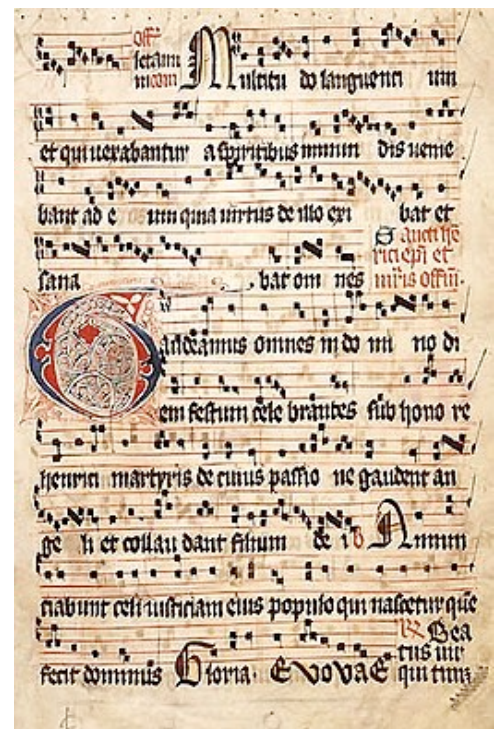 Multitu do languenti um
et qui uexabantur a spiritibus inmun dis uenie
bant ad e um quia uirtus de illo exi bat et
sana bat om nes
Gaudeamus omnes in do mi no di
em festum cele brantes sub hono re
henrici martyris de cuius passio ne gaudent an
ge li et collau dant filium de i V Annun
ciabunt celi iusticiam eius populo qui nascetur que
fecit dominus Gloria. EVOVAE
Bea
tus uir
qui